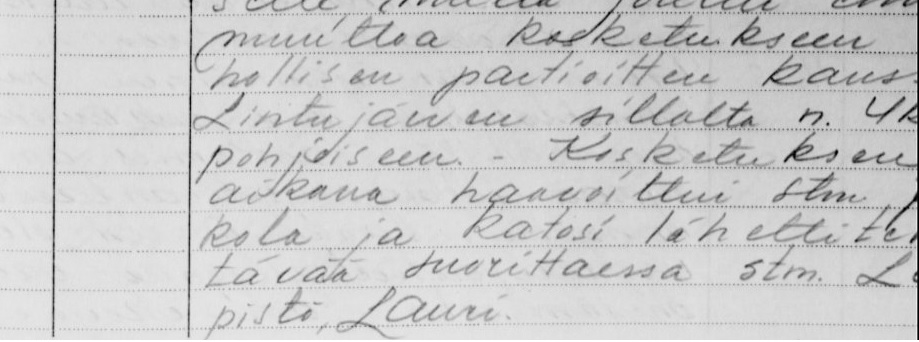 muuttoa kosketukseen
hollisen partioitten kans
Lintujärven sillalta n. 4k
pohjoiseen. - Kosketuksen
aikana haavoittui stm.
kola ja katosi lähettiteh
tävää suorittaessa stm. L
pistö, Lauri.